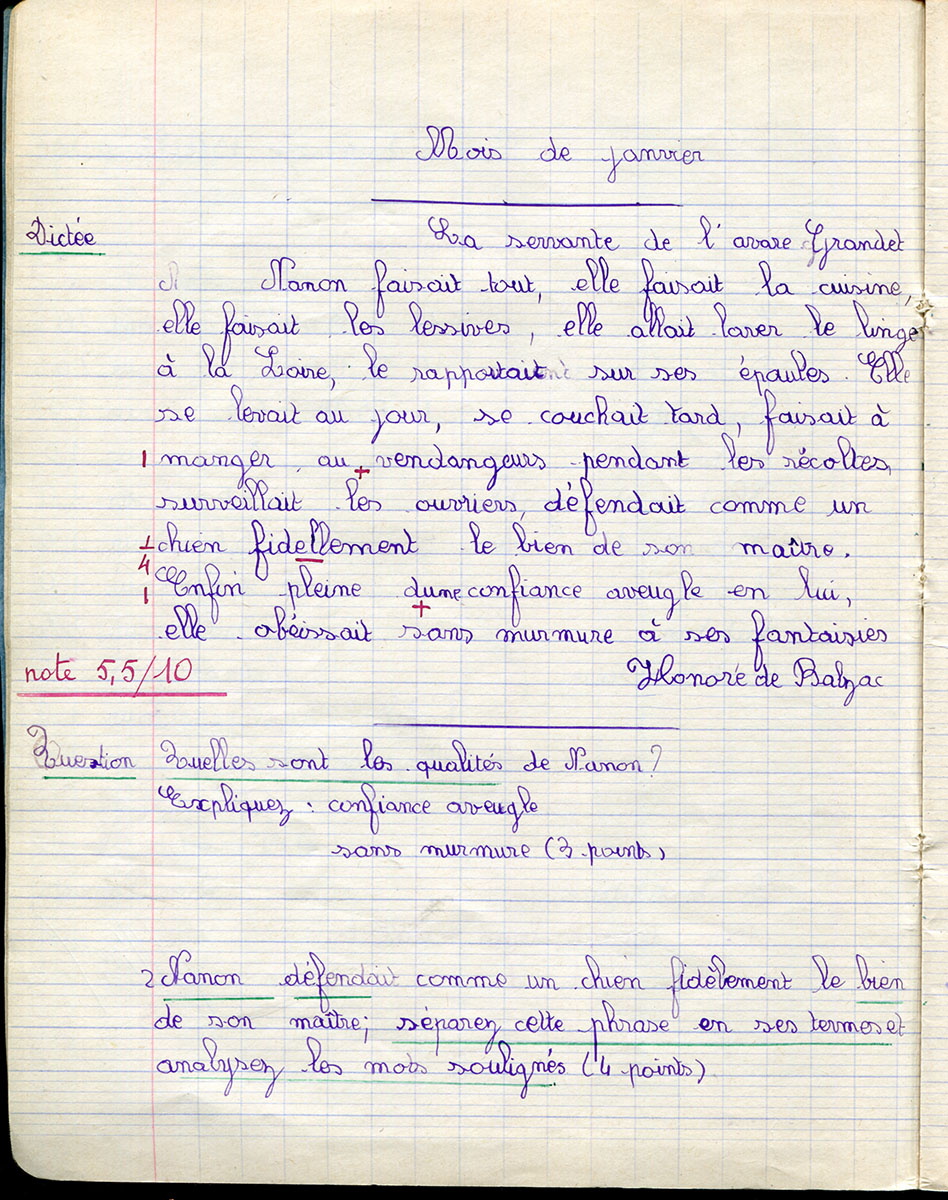 Mois de janvier
Dictée La servante de l'avare Grandet
N Nanon faisait tout, elle faisait la cuisine,
elle faisait les lessives, elle allait laver le linge
à la Loire, le rapportait sur ses épaules. Elle
se levait au jour, se couchait tard, faisait à
1 manger au + vendangeurs pendant les récoltes,
surveillait les ouvriers, défendait comme un
1/4 chien fidellement le bien de son maître.
1 Enfin pleine dune + confiance aveugle en lui,
elle obéissait sans murmure à ses fantaisies
note 5,5/10 Honoré de Balzac
Question Quelles sont les qualités de Nanon?
Expliquez : confiance aveugle
sans murmure (3 points)
2 Nanon défendait comme un chien fidèlement le bien
de son maître; séparez cette phrase en ses termes et
analysez les mots soulignés (4 points)